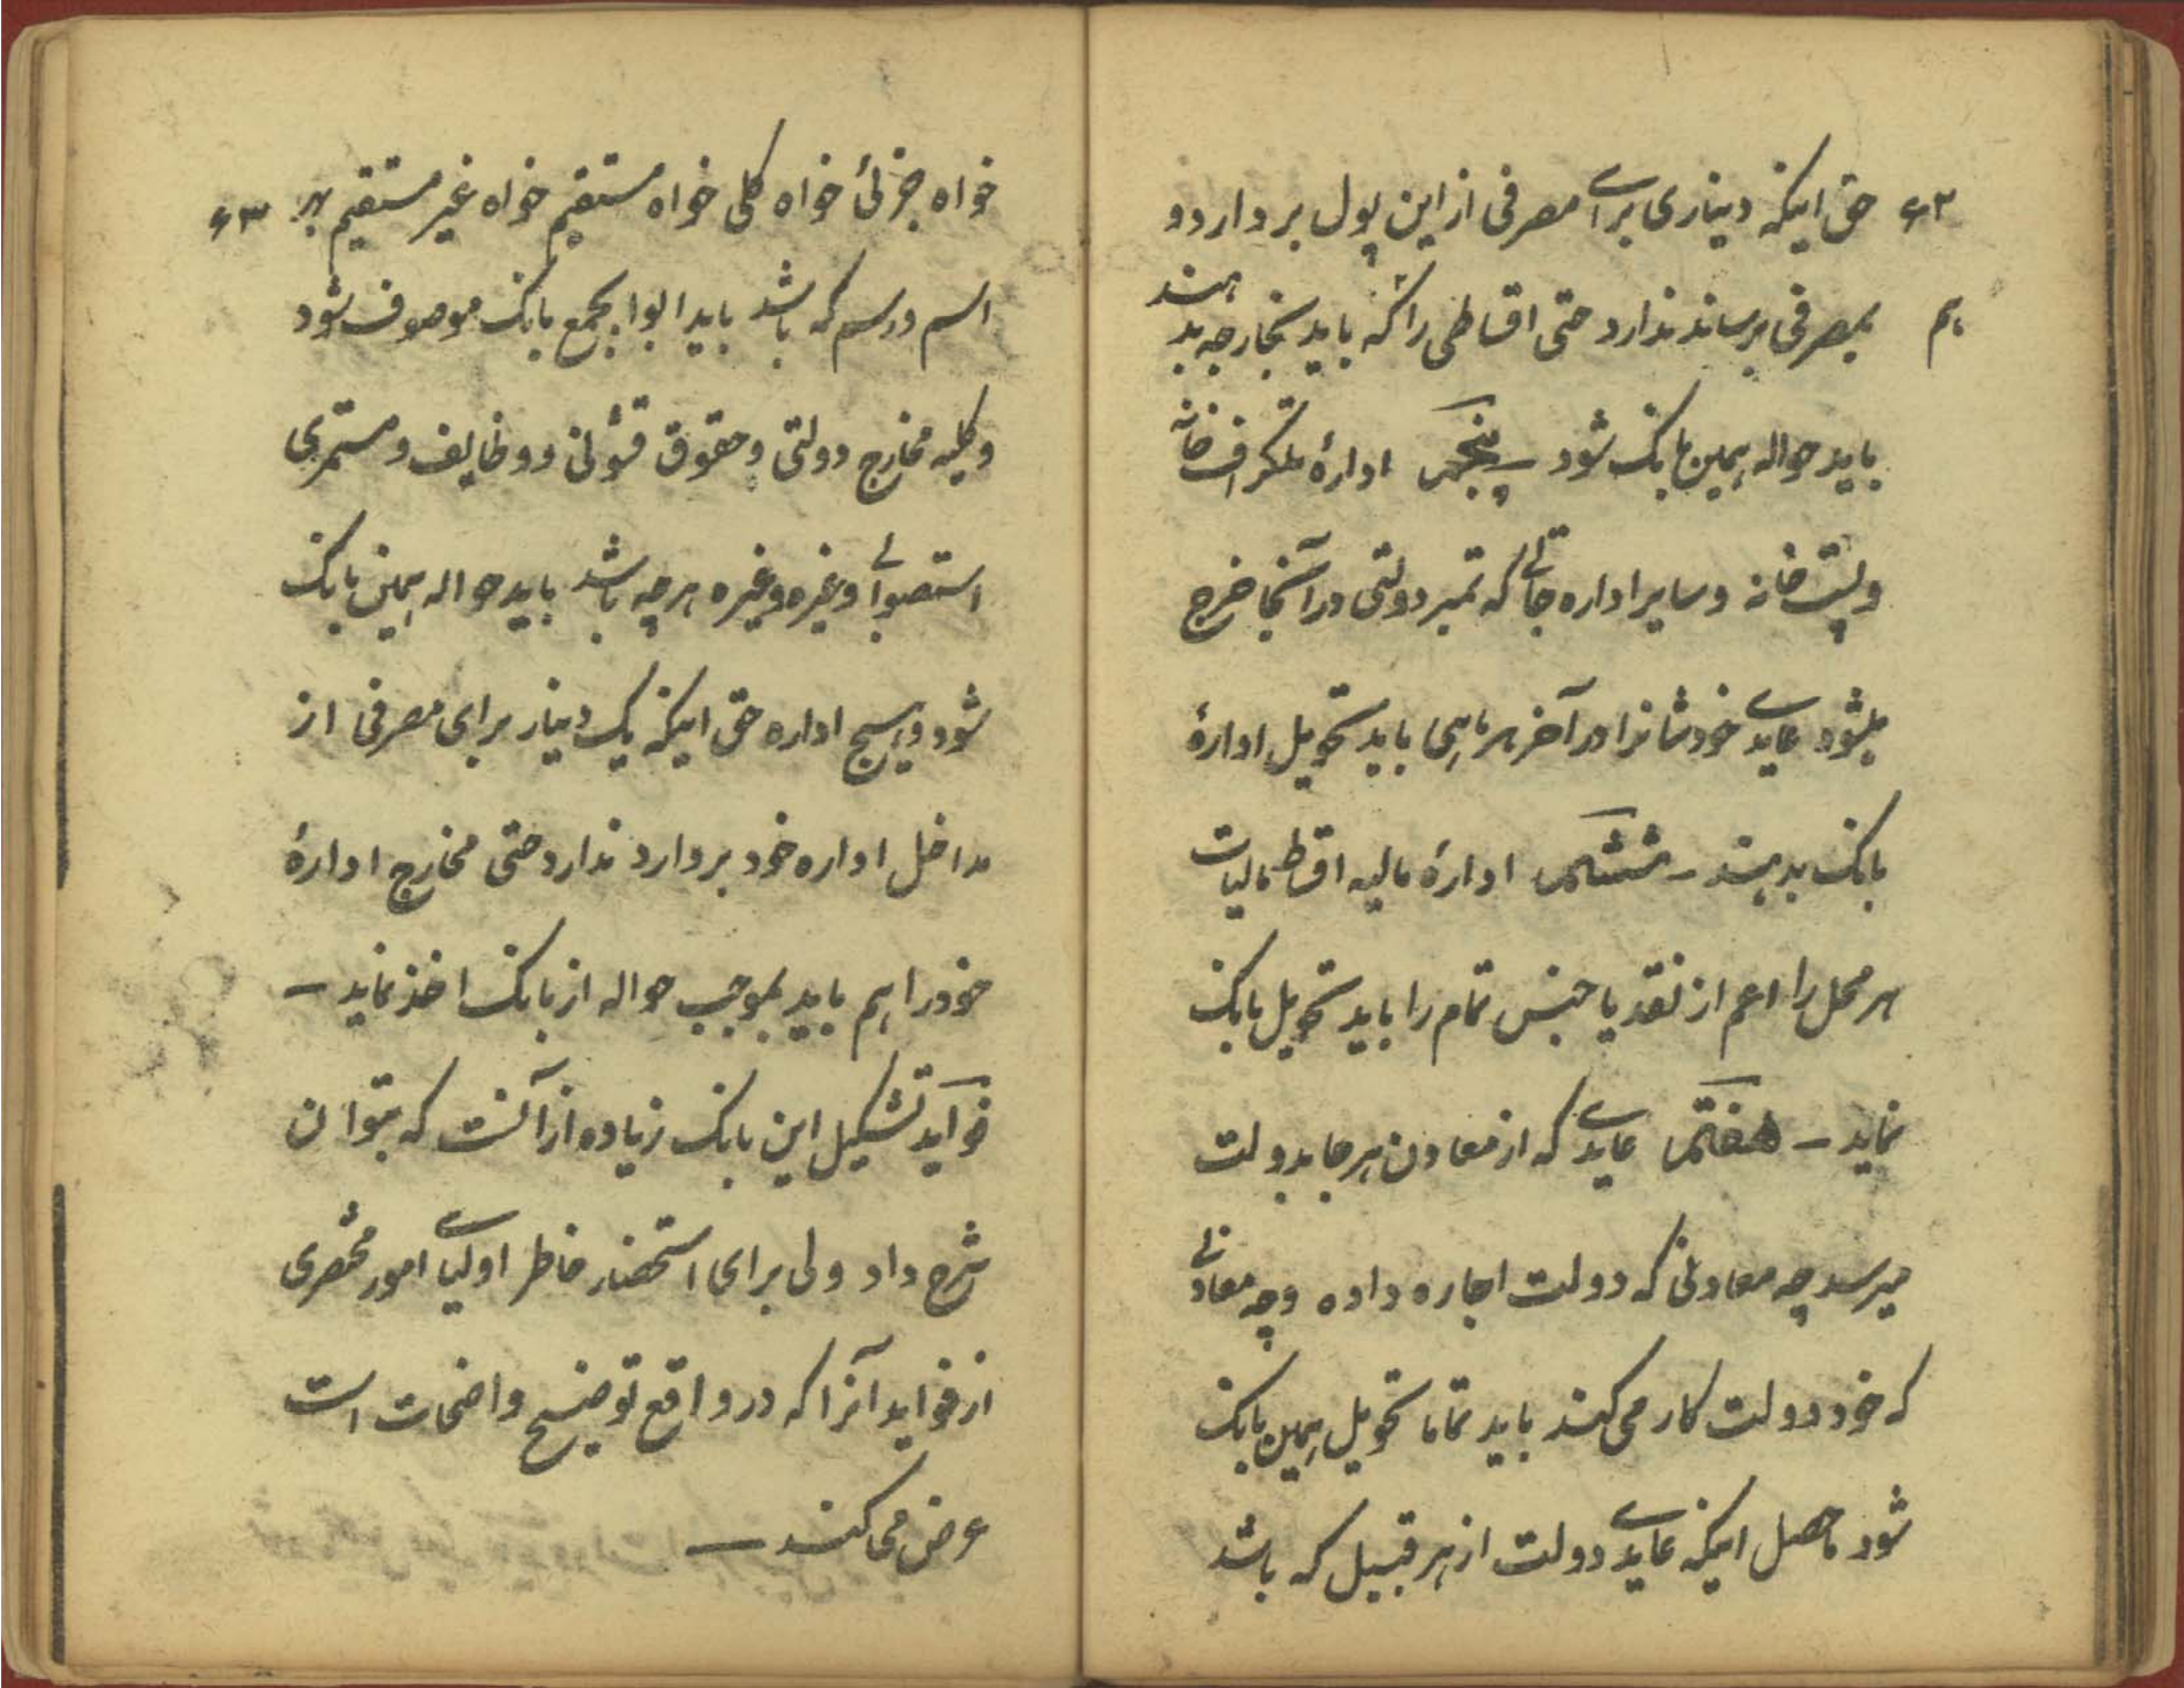 ۶۲ حق اینکه دیناری برای مصرفی از این پول بردارد و
بمصرفی برساند ندارد حتی اقساطی را که باید بخارجه بدهند
باید حواله همین بانک شود – پنجم ادارهٔ تلگرافخانه
و پستخانه و سایر اداره جاتی که تمبر دولتی در آنجا خرج
میشود عایدی خودشانرا در آخر هر ماهی باید تحویل ادارهٔ
بانک بدهند – ششم ادارهٔ مالیه اقساط مالیات
هر محل را اعم از نقد یا جنس تمام را باید تحویل بانک
نماید – هفتم عایدی که از معادن هر جا بدولت
میرسد چه معادنی که دولت اجاره داده و چه معادنی
که خود دولت کار می کند باید تماما تحویل همین بانک
شود ماحصل اینکه عایدی دولت از هر قبیل که باشد
خواه جزئی خواه کلی خواه مستقیم خواه غیر مستقیم بهر ۶۳
اسم و رسم که باشد باید ابوابجمع بانک موصوف شود
و کلیه مخارج دولتی و حقوق قشونی و وظایف و مستمری
استصوابی و غیره و غیره هر چه باشد باید حواله همین بانک
شود و هیچ اداره حق اینکه یک دینار برای مصرفی از
مداخل اداره خود بردارد ندارد حتی مخارج ادارهٔ
خود را هم باید بموجب حواله از بانک اخذ نماید –
فوآید تشکیل این بانک زیاده از آنست که بتوان
شرح داد ولی برای استحضار خاطر اولیای امور مختصری
از فواید آنرا که در واقع توضیح واضحات است
عرض می کنند –